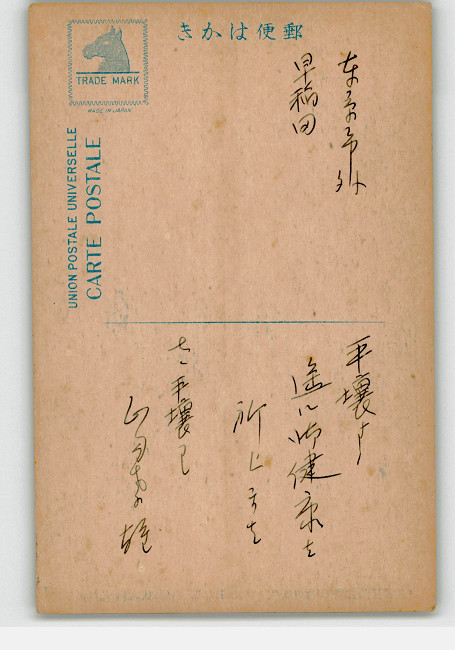 きかはび便郵
TRADE MARK
MADE IN JAPAN
UNION POSTALE UNIVERSELLE
CARTE POSTALE
東京市外
早稲田
平壌より
遥に御健康を
祈ります
平壌